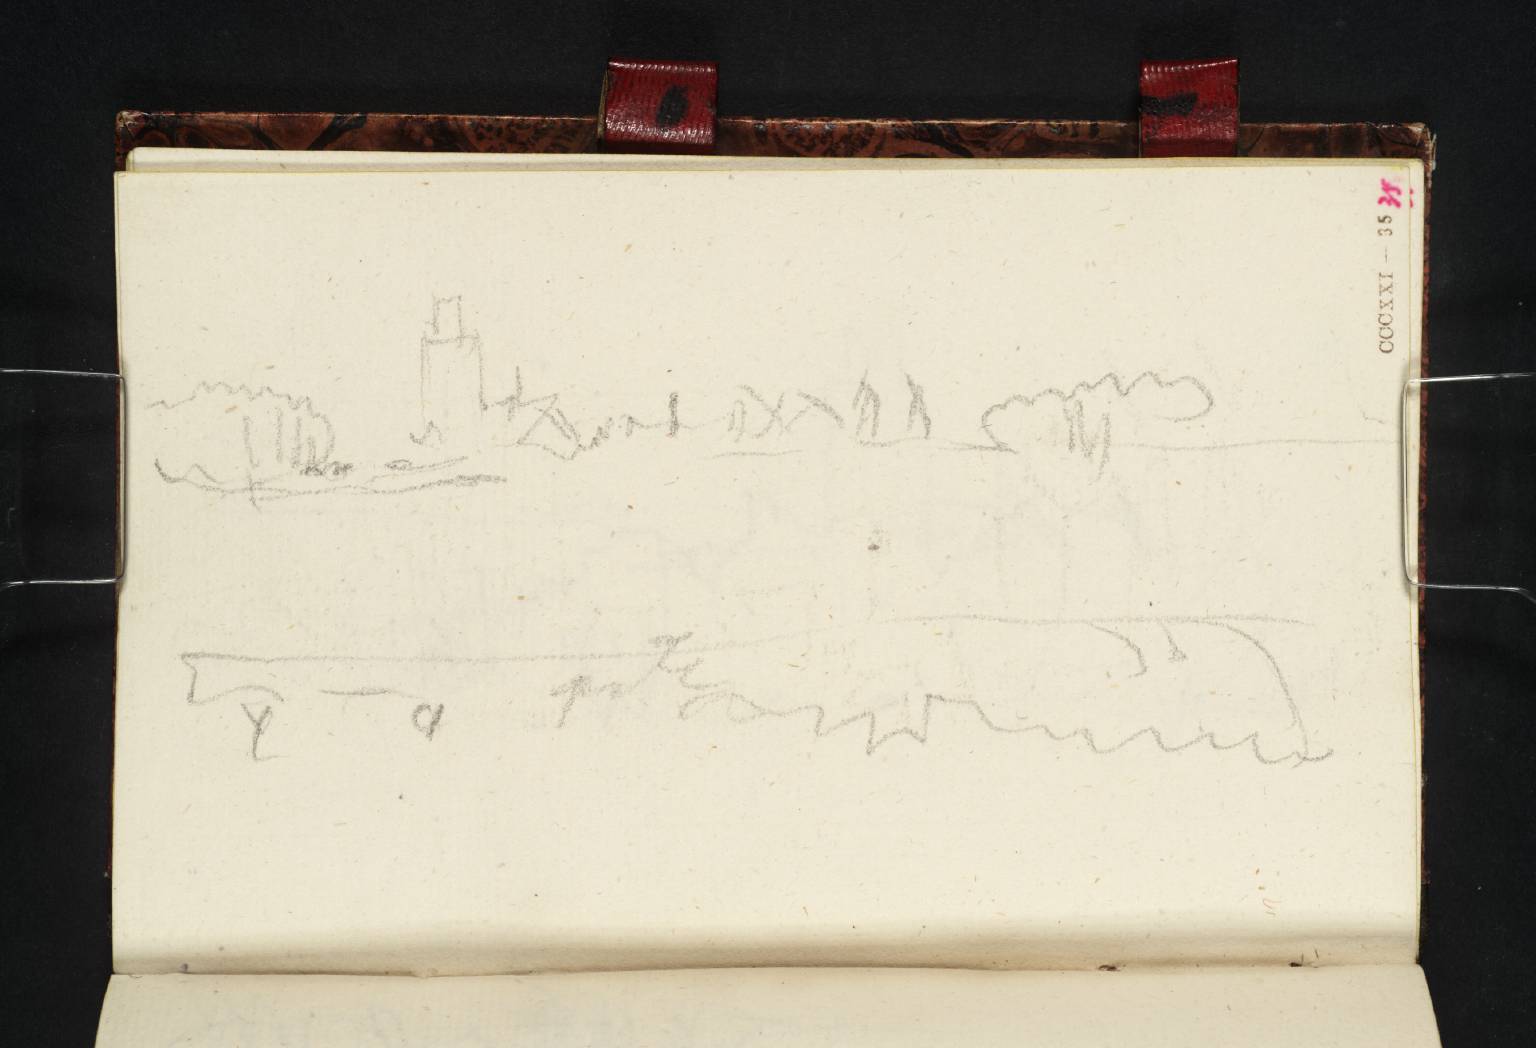 CCCXXI — 35
35